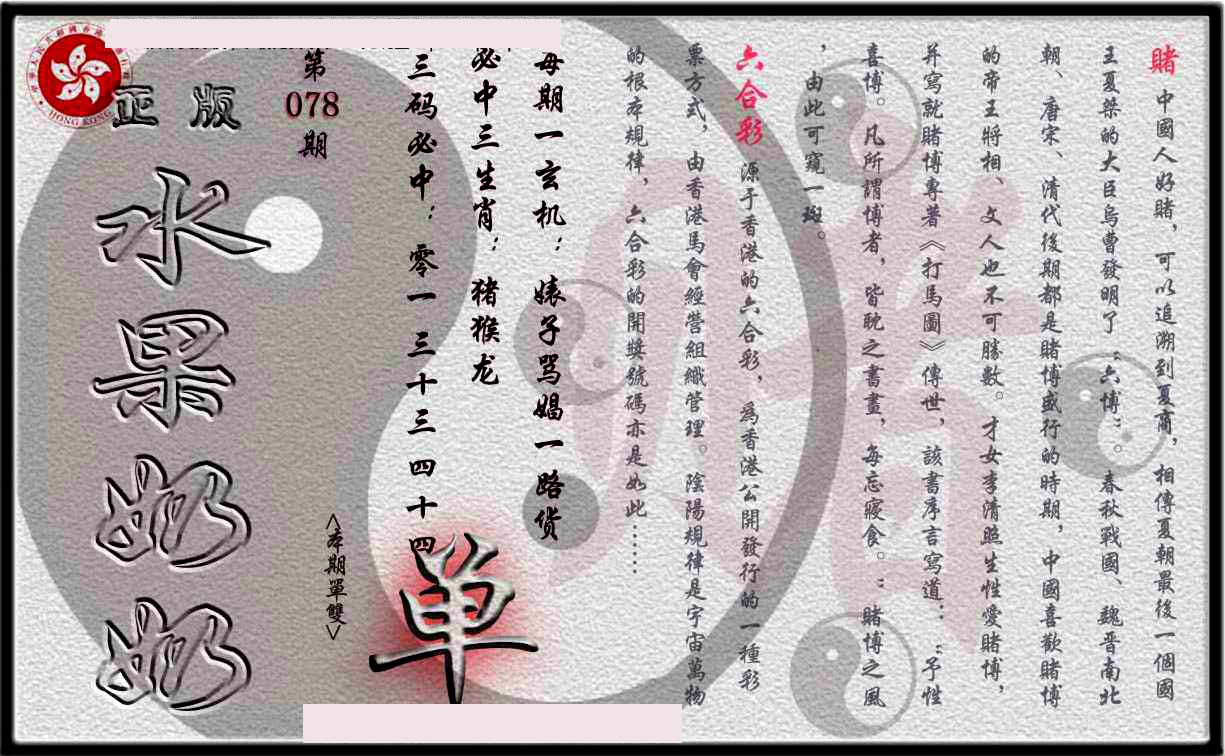 賭 中國人好賭，可以追溯到夏商，相傳夏朝最後一個國
王夏桀的大臣烏曹發明了“六博”。春秋戰國、魏晋南北
朝、唐宋、清代後期都是賭博盛行的時期，中國喜歡賭博
的帝王將相、文人也不可勝數。才女李清照生性愛賭博，
并寫就賭博專著《打馬圖》傳世，該書序言寫道：“予性
喜博。凡所謂博者，皆耽之書畫，每忘寢食。”賭博之風
，由此可窺一斑。
六合彩 源于香港的六合彩，爲香港公開發行的一種彩
票方式，由香港馬會經營組織管理。陰陽規律是宇宙萬物
的根本規律，六合彩的開獎號碼亦是如此……
每期一玄机：婊子骂娼一路货
必中三生肖：猪猴龙
三码必中：零一 三十三 四十四
单
<本期單雙>
第
078
期
正版
水果奶奶
HONG KONG